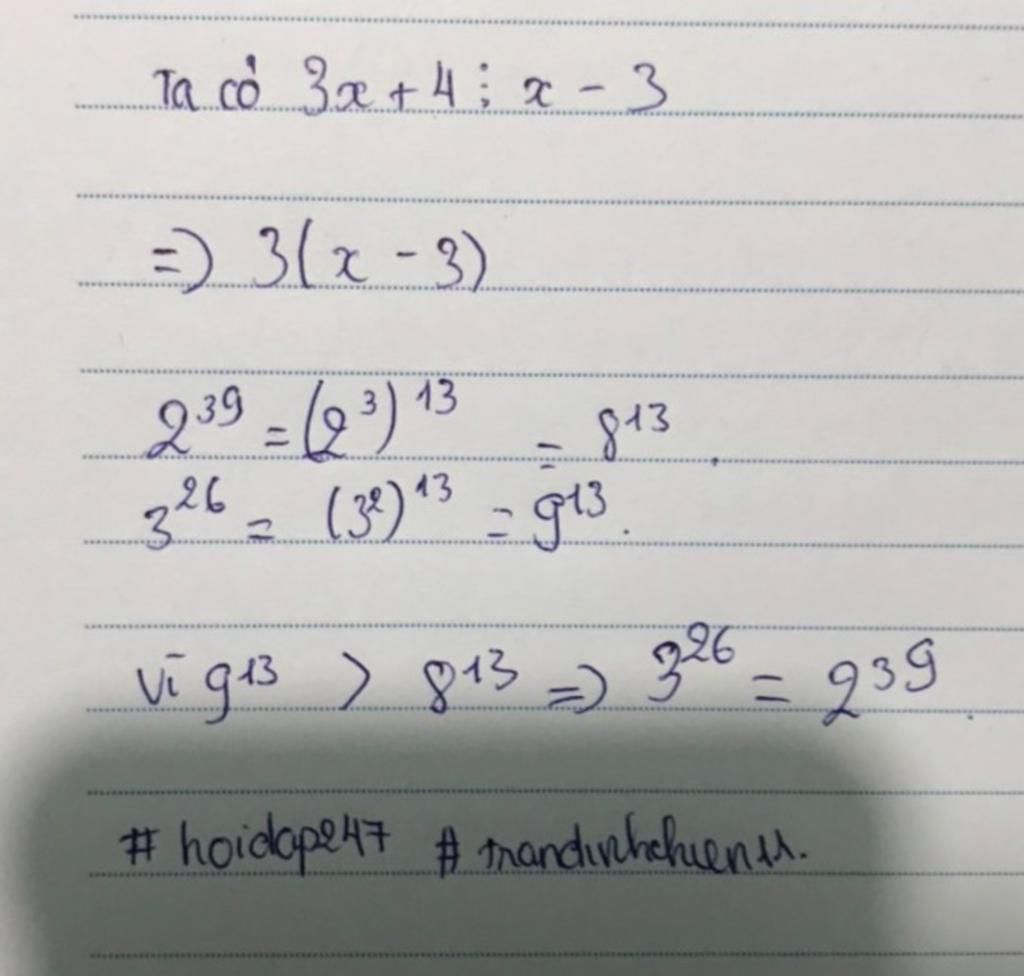 Ta có 3x + 4 ⋮ x - 3
=> 3(x - 3)
2³⁹ = (2³)¹³ = 8¹³.
3²⁶ = (3²)¹³ = 9¹³.
Vì 9¹³ > 8¹³ => 3²⁶ = 2³⁹.
# hoidap247 # trandinhchien11.